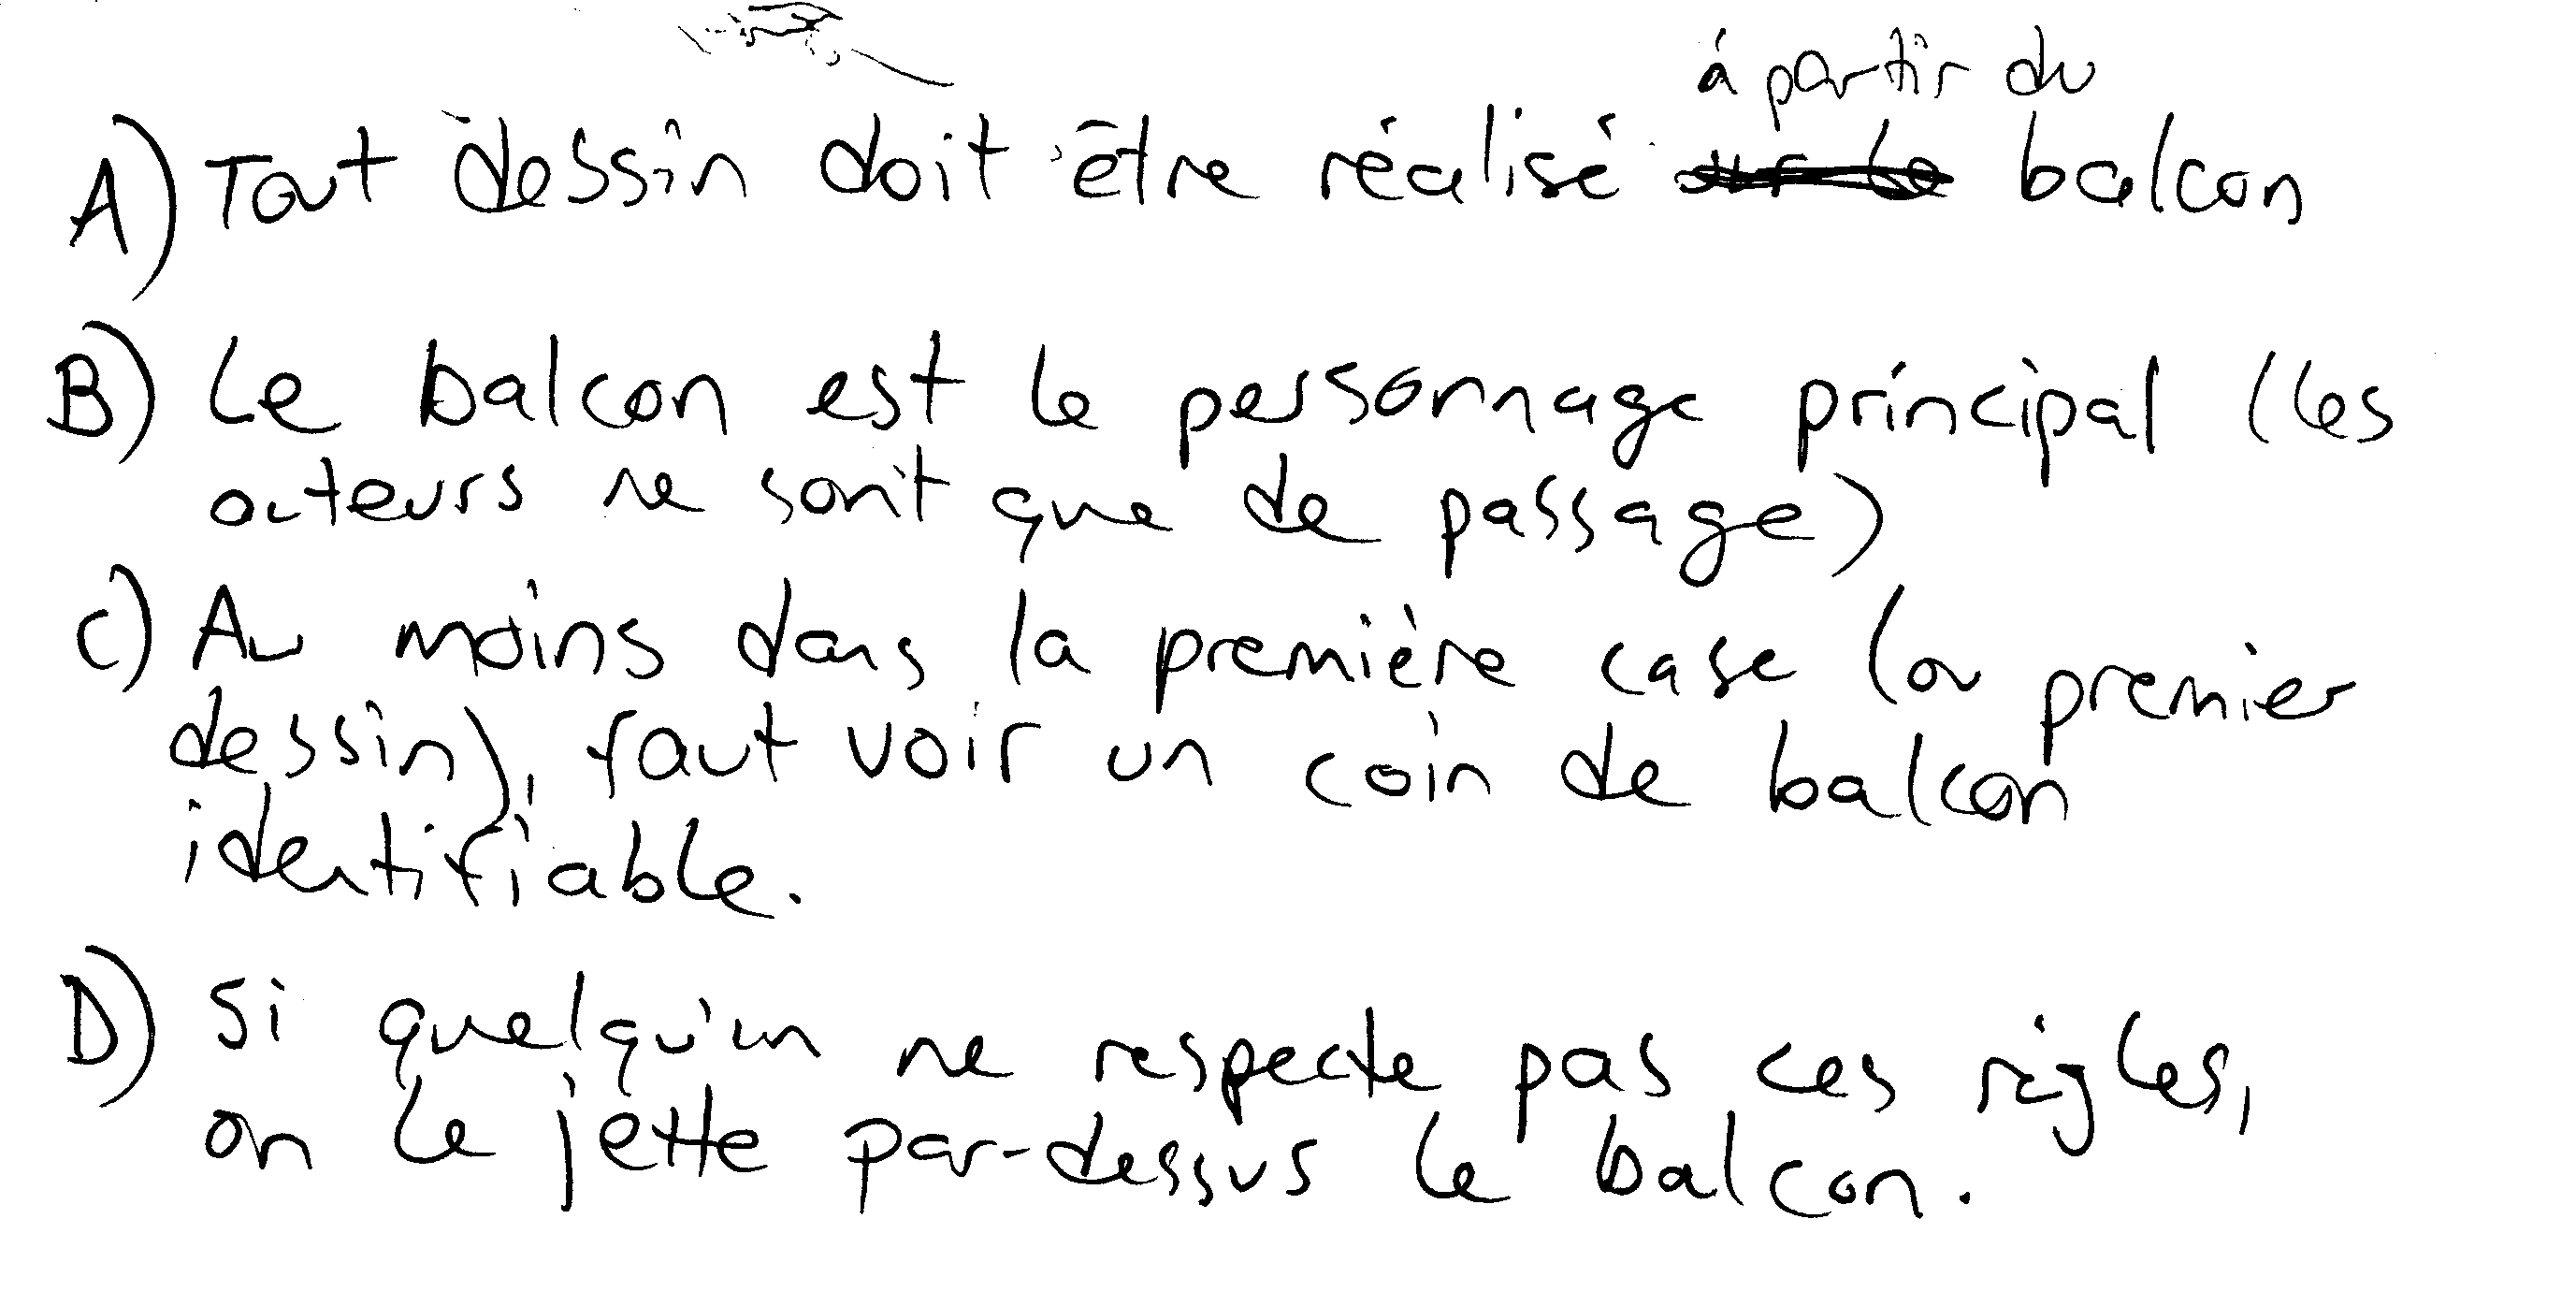 à partir du
A) Tout dessin doit être réalisé sur le balcon
B) Le balcon est le personnage principal (les
acteurs ne sont que de passage)
C) Au moins dans la première case (ou premier
dessin), faut voir un coin de balcon
identifiable.
D) Si quelqu'un ne respecte pas ces règles,
on le jette par-dessus le balcon.